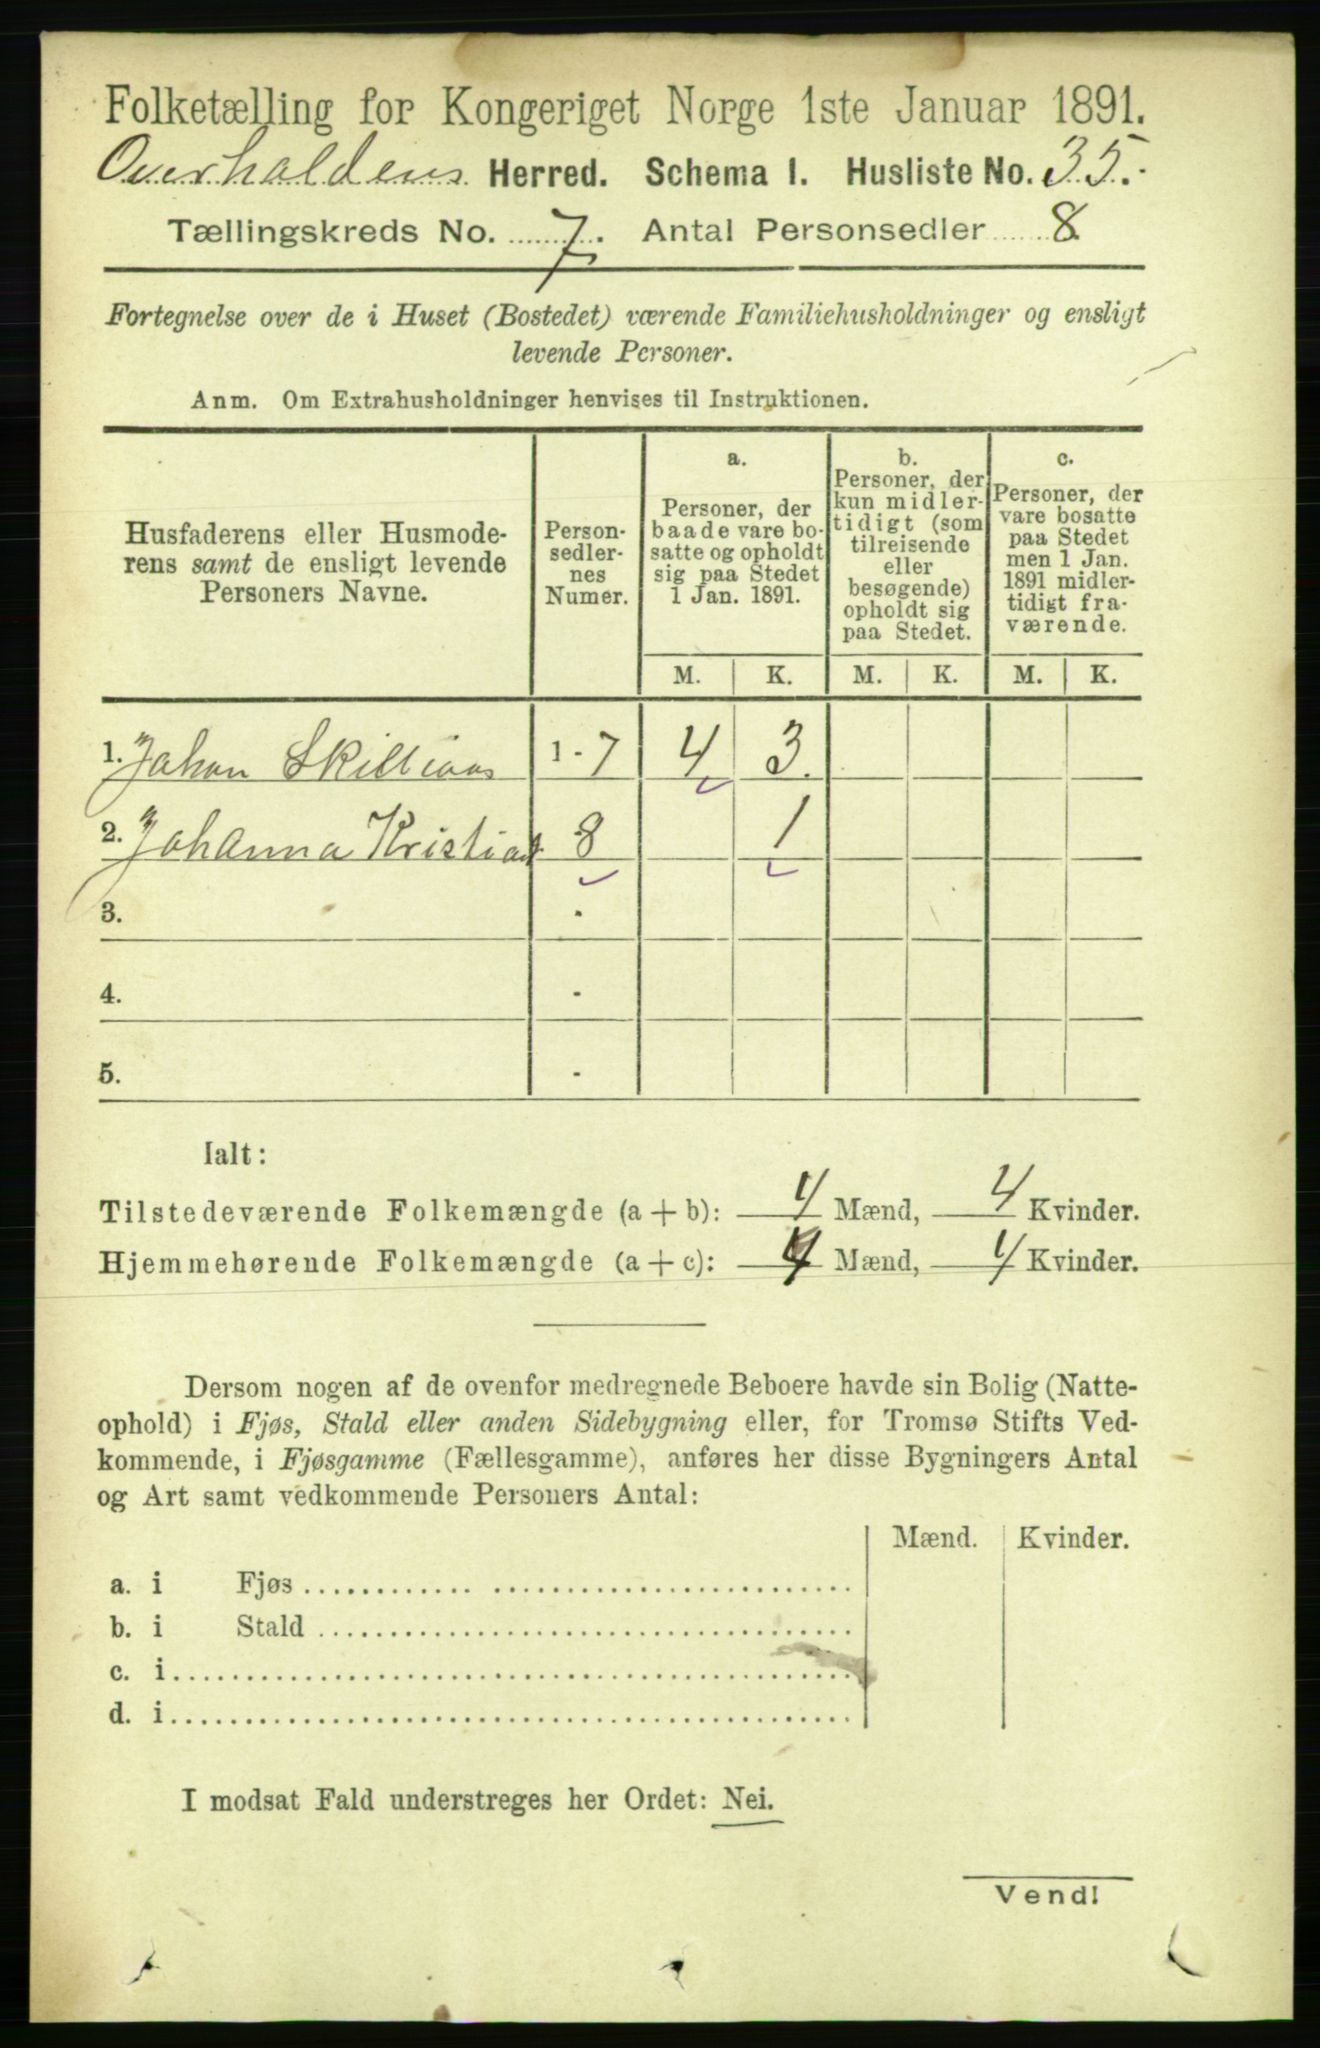 Folketælling for Kongeriget Norge 1ste Januar 1891.
Overhaldens Herred. Schema I. Husliste No. 35.
Tællingskreds No. 7. Antal Personsedler 8
Fortegnelse over de i Huset (Bostedet) værende Familiehusholdninger og ensligt
levende Personer.
Anm. Om Extrahusholdninger henvises til Instruktionen.
Husfaderens eller Husmode-
rens samt de ensligt levende
Personers Navne.
Person-
sedler-
nes
Numer.
a.
Personer, der
baade vare bo-
satte og opholdt
sig paa Stedet
1 Jan. 1891.
b.
Personer, der
kun midler-
tidigt (som
tilreisende
eller
besøgende)
opholdt sig
paa Stedet.
c.
Personer, der
vare bosatte
paa Stedet
men 1 Jan.
1891 midler-
tidigt fra-
værende.
M. K. M. K. M. K.
1. Johan 1-7 4 3.
2. Johanna Kristians 8 1
3. -
4. -
5. -
Ialt:
Tilstedeværende Folkemængde (a + b): 4 Mænd, 4 Kvinder.
Hjemmehørende Folkemængde (a + c): 4 Mænd, 4 Kvinder.
Dersom nogen af de ovenfor medregnede Beboere havde sin Bolig (Natte-
ophold) i Fjøs, Stald eller anden Sidebygning eller, for Tromsø Stifts Ved-
kommende, i Fjøsgamme (Fællesgamme), anføres her disse Bygningers Antal
og Art samt vedkommende Personers Antal:
Mænd. Kvinder.
a. i Fjøs
b. i Stald
c. i
d. i
I modsat Fald understreges her Ordet: Nei.
Vend!